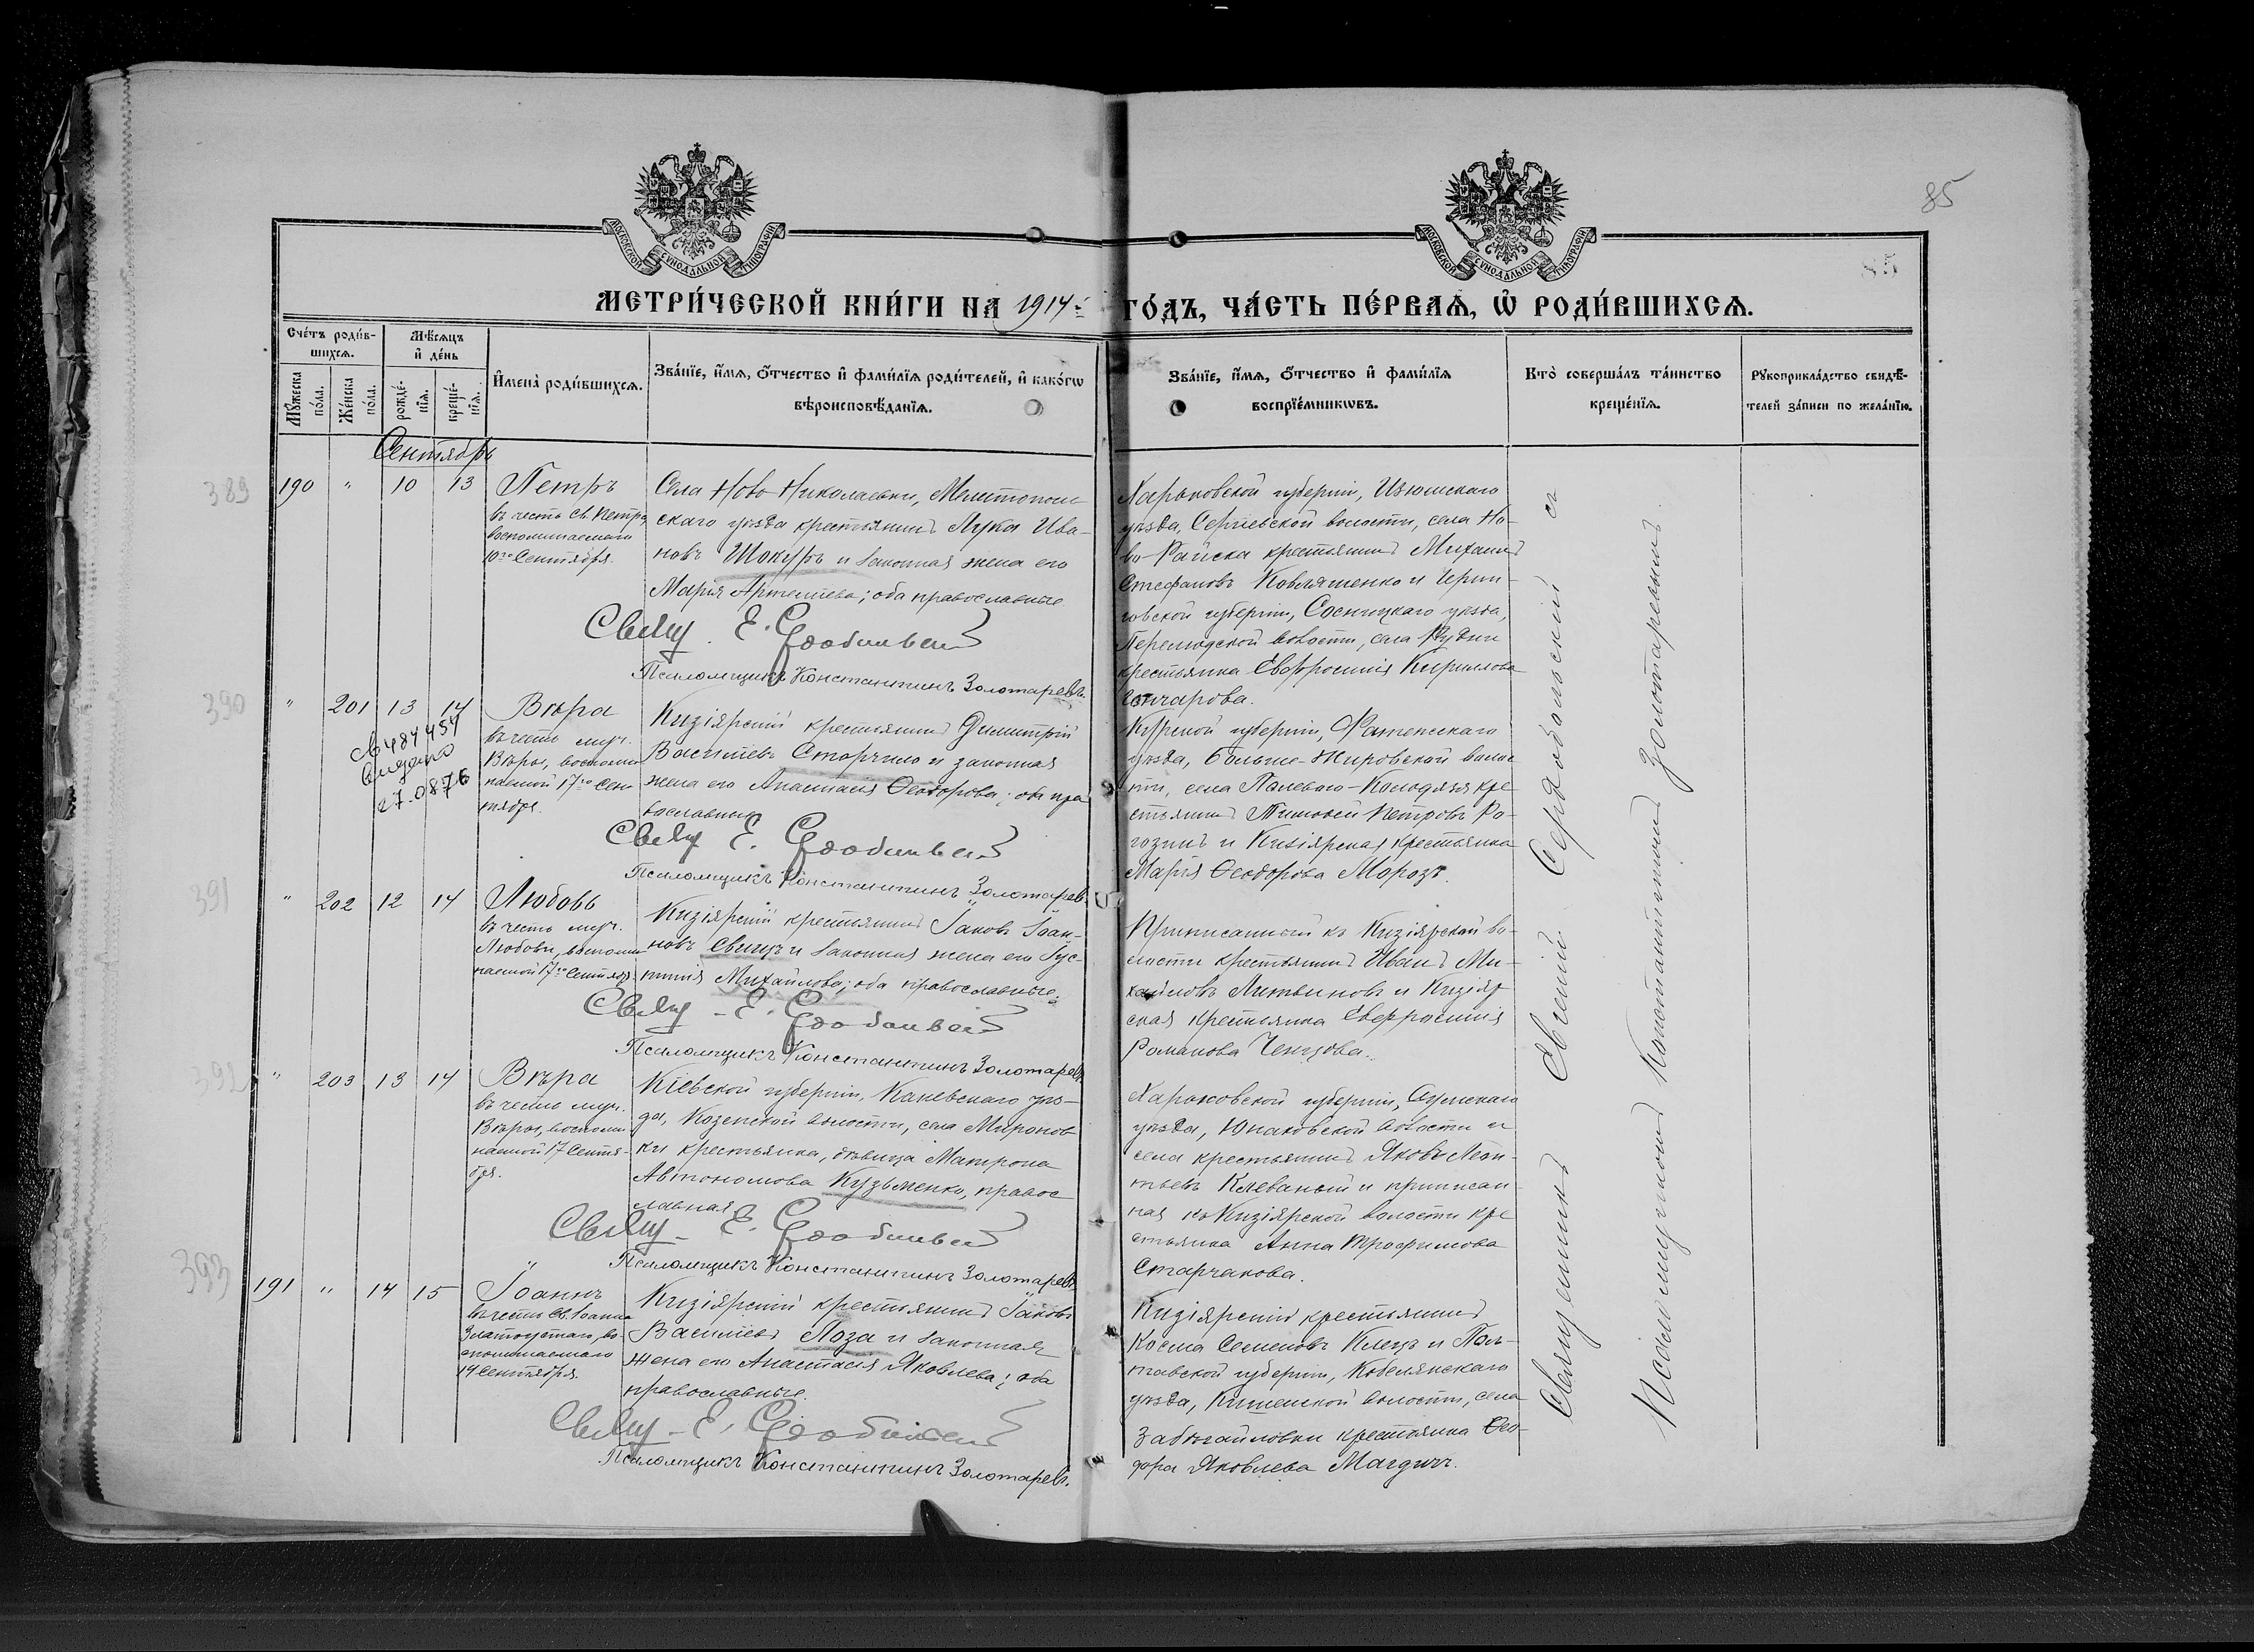 85
85
МОСКОВСКОЙ СУНОДАЛЬНОЙ ТИПОГРАФІИ
МОСКОВСКОЙ СУНОДАЛЬНОЙ ТИПОГРАФІИ
МЕТРИ́ЧЕСКОЙ КНИ́ГИ НА 1914 ГО́ДЪ, ЧА́СТЬ ПЕ́РВАѦ, Ѽ РОДИ́ВШИХСѦ.
Сче́тъ роди́в-
шихсѧ.
Мѣ́сѧцъ
и҆ де́нь
Мꙋ́жеска по́ла.
Же́нска по́ла.
рожде́-
нїѧ.
креще́-
нїѧ.
И҆мена̀ роди́вшихсѧ.
Зва́нїе, и҆́мѧ, ѻ҆́тчество и҆ фами́лїѧ роди́телей, и҆ како́гѡ
вѣроисповѣ́данїѧ.
Зва́нїе, и҆́мѧ, ѻ҆́тчество и҆ фами́лїѧ
воспрїе́мникѡвъ.
Кто̀ соверша́лъ та́инство
креще́нїѧ.
Рꙋкоприкла́дство свидѣ́-
телей за́писи по жела́нїю.
Сентябрь
389
190 " 10 13
Петръ
въ честь Св. Петра,
воспоминаемаго
10го Сентября.
Села Ново Николаевки, Мелитополь
скаго уѣзда крестьянинъ Лука Ива-
новъ Шокуръ и законная жена его
Марія Артемьева; оба православные
Свящ. Е.
Псаломщикъ Константинъ Золотаревъ.
Харьковской губерніи, Изюмскаго
уѣзда, Сергіевской волости, села Но-
во-Райска крестьянинъ Михаилъ
Стефановъ Ковляшенко и Черни-
говской губерніи, Сосницкаго уѣзда,
Перелюдской волости, села Рудни
крестьянка Евфросинія Кириллова
Гончарова.
390
" 201 13 14
Св 484454
Видано
27.0876
Вѣра
въ честь муч.
Вѣры, воспоми
наемой 17го Сен
тября.
Кизіярскій крестьянинъ Димитрій
Васильевъ Сторчило и законная
жена его Анастасія Ѳеодорова; оба пра
вославные
Свящ Е.
Псаломщикъ Константинъ Золотаревъ.
Курской губерніи, Фатежскаго
уѣзда, Больше-Жировской волос
ти, села Палеваго-Колодязя кре
стьянинъ Тимоѳей Петровъ Ро-
гозинъ и Кизіярская крестьянка
Марія Ѳеодорова Морозъ.
391
" 202 12 14
Любовь
въ честь муч.
Любови, воспоми
наемой 17го Сентября
Кизіярскій крестьянинъ Іаковъ Іоан-
новъ Свинцъ и законная жена его Іус-
тинія Михайлова; оба православные.
Свящ - Е.
Псаломщикъ Константинъ Золотаревъ
Приписанный къ Кизіярской во-
лости крестьянинъ Иванъ Ми-
хайловъ Литвиновъ и Кизіяр
ская крестьянка Евфросинія
Романова Ченцова.
392
" 203 13 14
Вѣра
въ честь муч.
Вѣры, воспоми
наемой 17 Сентя-
бря.
Кіевской губерніи, Каневскаго уѣз-
да, Козенской волости, села Миронов
ки крестьянка, дѣвица Матрона
Автономова Кузьменко, правос
лавная
Свящ - Е.
Псаломщикъ Константинъ Золотаревъ
Харьковской губерніи, Сумскаго
уѣзда, Юнаковской волости и
села крестьянинъ Яковъ Леон-
тьевъ Клеваный и приписан-
ная къ Кизіярской волости кре
стьянка Анна Трофимова
Старчакова.
393
191 " 14 15
Іоаннъ
въ честь Св. Іоанна
Златоустаго, во-
споминаемаго
14 Сентября.
Кизіярскій крестьянинъ Іаковъ
Васильевъ Лоза и законная
жена его Анастасія Яковлева; оба
православные.
Свящ - Е.
Псаломщикъ Константинъ Золотаревъ.
Кизіярскій крестьянинъ
Косма Семеновъ Клецъ и Пол-
тавской губерніи, Кобелякскаго
уѣзда, Кишенской волости, села
Забѣгайловки крестьянка Ѳео-
дора Яковлева Магдичъ.
Священникъ Евгеній Серадобольскій съ
Псаломщикомъ Константиномъ Золотаревымъ.